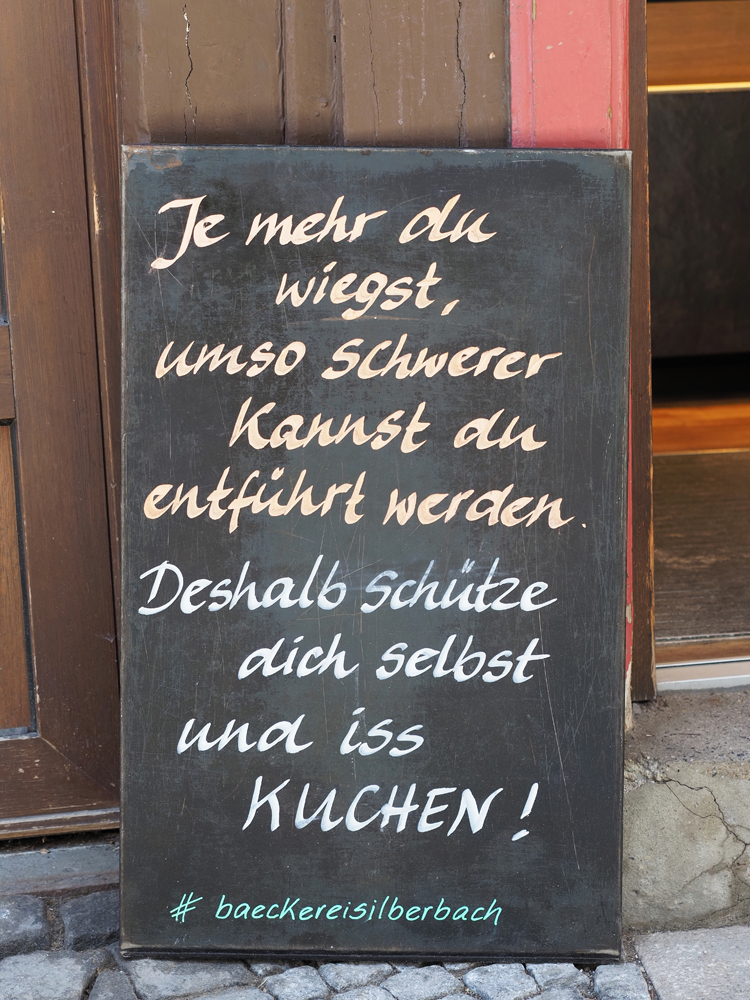 Je mehr du
wiegst,
umso schwerer
kannst du
entführt werden.
Deshalb schütze
dich selbst
und iss
KUCHEN!
# baeckereisilberbach